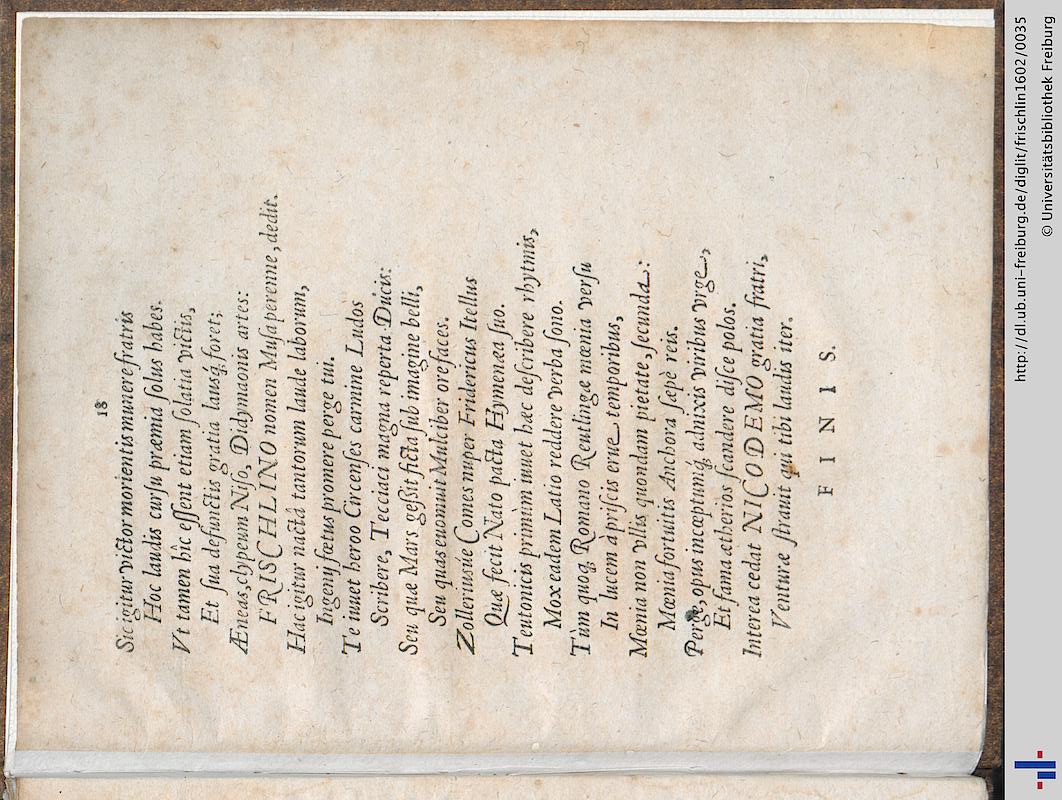 18
Sic igitur victor morientis munere fratris
Hoc laudis cursu præmia solus habes.
Vt tamen hîc essent etiam solatia victis,
Et sua defunctis gratia lausq́; foret;
Æneas, clypeum Niso, Didymaonis artes:
FRISCHLINO nomen Musa perenne, dedit.
Hac igitur nactâ tantorum laude laborum,
Ingenij fœtus promere perge tui.
Te iuuet heroo Circenses carmine Ludos
Scribere, Tecciaci magna reperta Ducis:
Seu quæ Mars geßit ficta sub imagine belli,
Seu quas euomuit Mulciber ore faces.
Zolleriusúe Comes nuper Fridericus Itellus
Quæ fecit Nato pacta Hymenæa suo.
Teutonicis primùm iuuet hæc describere rhytmis,
Mox eadem Latio reddere verba sono.
Tùm quoq; Romano Reutlingæ mœnia versu
In lucem à priscis erue temporibus,
Mœnia non vllis quondam pietate, secunda:
Mœnia fortutis Anchora sæpè reis.
Perge, opus inceptumq́; adnixis viribus vrge,
Et fama ætherios scandere disce polos.
Interea cedat NICODEMO gratia fratri,
Venturæ strauit qui tibi laudis iter.
FINIS.
http://dl.ub.uni-freiburg.de/diglit/frischlin1602/0035
© Universitätsbibliothek Freiburg